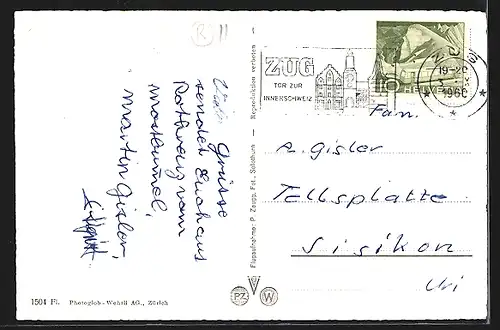 R 11
Viele Grüsse
sendet Euch aus
vom
Martin Gisler
ZUG
TOR ZUR
INNERSCHWEIZ
ZUG
19-20
1960
10 HELVETIA
Fam.
A. Gisler
Tellsplatte
Sisikon
Uri
Flugaufnahme: P. Zaugg, Fot., Solothurn — Reproduktion verboten
1504 Fl. Photoglob-Wehrli AG., Zürich
PZ V W